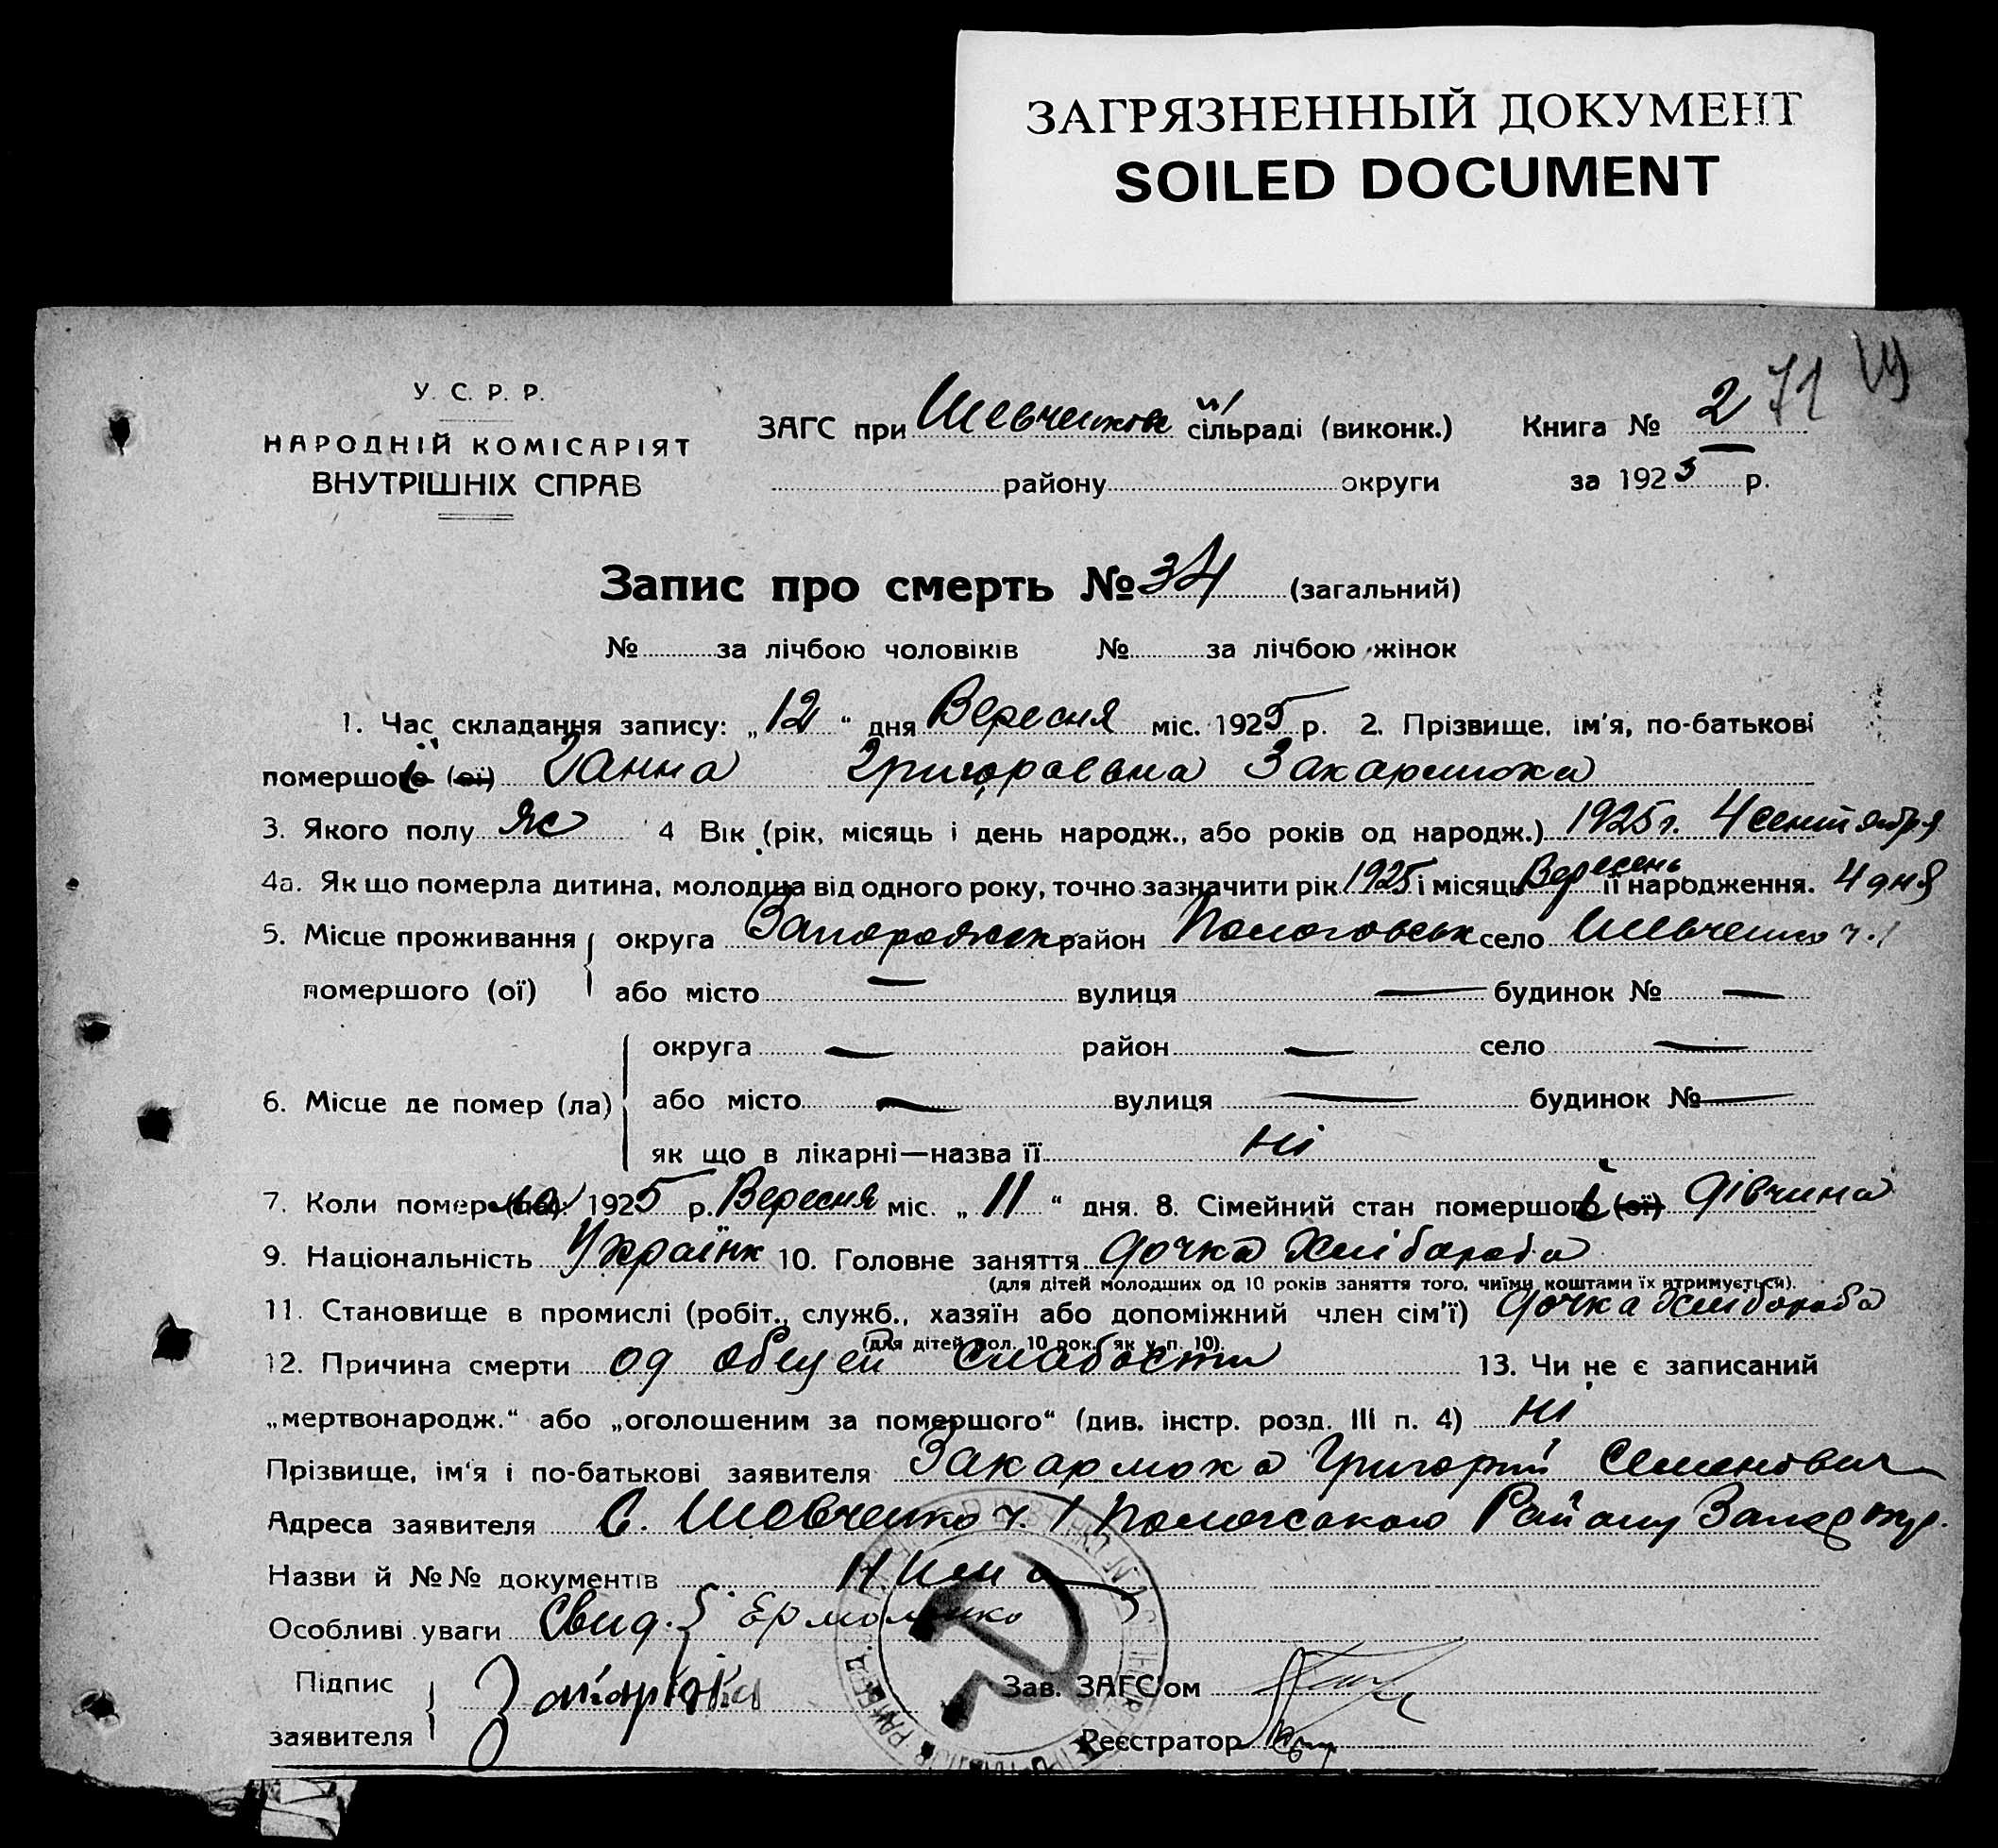 ЗАГРЯЗНЕННЫЙ ДОКУМЕНТ
SOILED DOCUMENT
У. С. Р. Р.
НАРОДНІЙ КОМІСАРІЯТ
ВНУТРІШНІХ СПРАВ
ЗАГС при Шевченков №1 сільраді (виконк.)
району округи
Книга № 2 71
за 1925 р.
Запис про смерть № 34 (загальний)
№ за лічбою чоловіків № за лічбою жінок
1. Час складання запису: „12“ дня Вересня міс. 1925 р. 2. Прізвище, ім'я, по-батькові
помершої (ої) Ганна Григораевна Закарлюка
3. Якого полу Жс 4 Вік (рік, місяць і день народж., або років од народж.) 1925 г. 4 сентября
4а. Як що померла дитина, молодша від одного року, точно зазначити рік 1925 і місяць Вересень її народження. 4 дня
5. Місце проживання округа Запорожск район Пологовськ село Шевченко ч.1
помершого (ої) або місто — вулиця — будинок № —
округа — район — село —
6. Місце де помер (ла) або місто — вулиця — будинок № —
як що в лікарні—назва її ні
7. Коли померла (ла): 1925 р. Вересня міс. „11“ дня. 8. Сімейний стан помершої (ої) дівчина
9. Національність Українк 10. Головне заняття дочка Хлібороба
(для дітей молодших од 10 років заняття того, чиїми коштами їх втримується).
11. Становище в промислі (робіт., служб., хазяїн або допоміжний член сім'ї) дочка Хлібороба
(для дітей мол. 10 рок. як у п. 10).
12. Причина смерти од общей слабости 13. Чи не є записаний
„мертвонародж.“ або „оголошеним за помершого“ (див. інстр. розд. III п. 4) ні
Прізвище, ім'я і по-батькові заявителя Закарлюка Григорий Семенович
Адреса заявителя С. Шевченко ч. 1 Пологського Району Запор окр.
Назви й №№ документів
Особливі уваги Свид. Ермоленко
Підпис
заявителя
Зав. ЗАГС'ом
Реєстратор